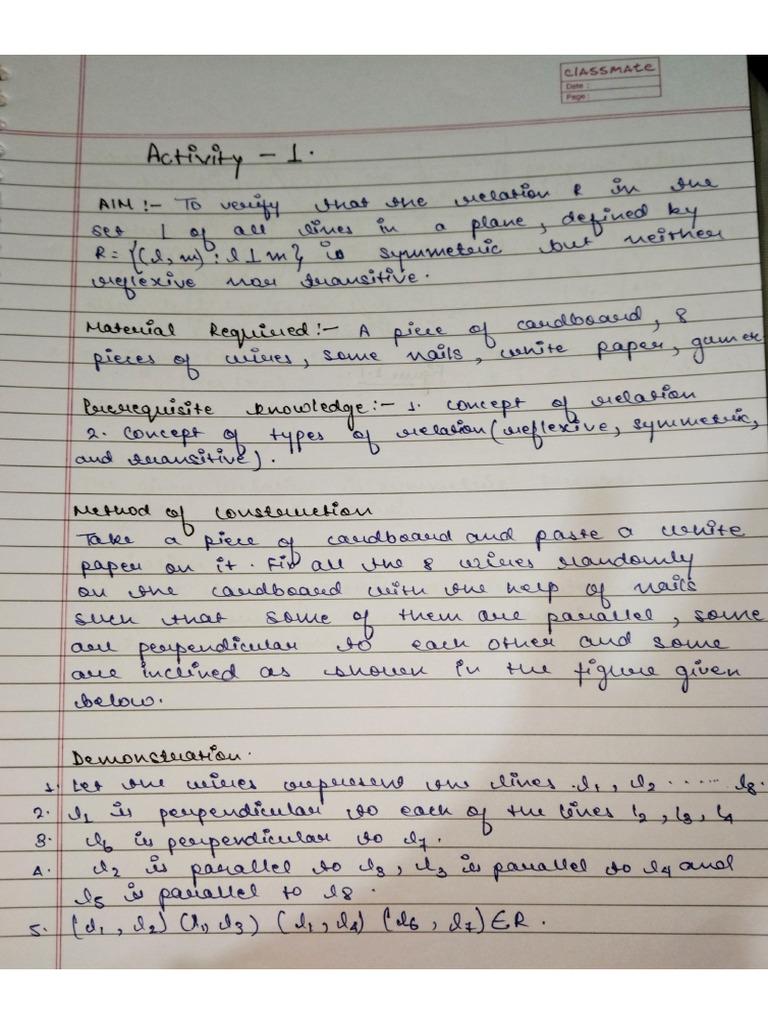 CLASSMATE
Date :
Page :
Activity - 1.
AIM :- To verify that the relation R in the
set L of all lines in a plane, defined by
R = {(l, m) : l ⊥ m} is symmetric but neither
reflexive nor transitive.
Material Required :- A piece of cardboard, 8
pieces of wires, some nails, white paper, gumer
Prerequisite knowledge :- 1. concept of relation
2. concept of types of relation (reflexive, symmetric,
and transitive).
Method of Construction
Take a piece of cardboard and paste a white
paper on it. Fix all the 8 wires randomly
on the cardboard with the help of nails
such that some of them are parallel, some
are perpendicular to each other and some
are inclined as shown in the figure given
below.
Demonstration.
1. Let the wires represent the lines l1, l2 ...... l8.
2. l1 is perpendicular to each of the lines l2, l3, l4
3. l6 is perpendicular to l7.
4. l2 is parallel to l3, l3 is parallel to l4 and
l5 is parallel to l8.
5. (l1, l2) (l1, l3) (l1, l4) (l6, l7) ∈ R.